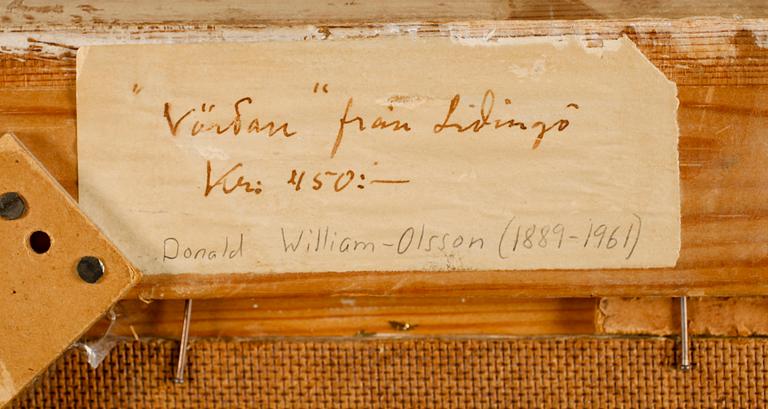 "Vårdan" från Lidingö
Kr: 450:—
Donald William-Olsson (1889-1961)